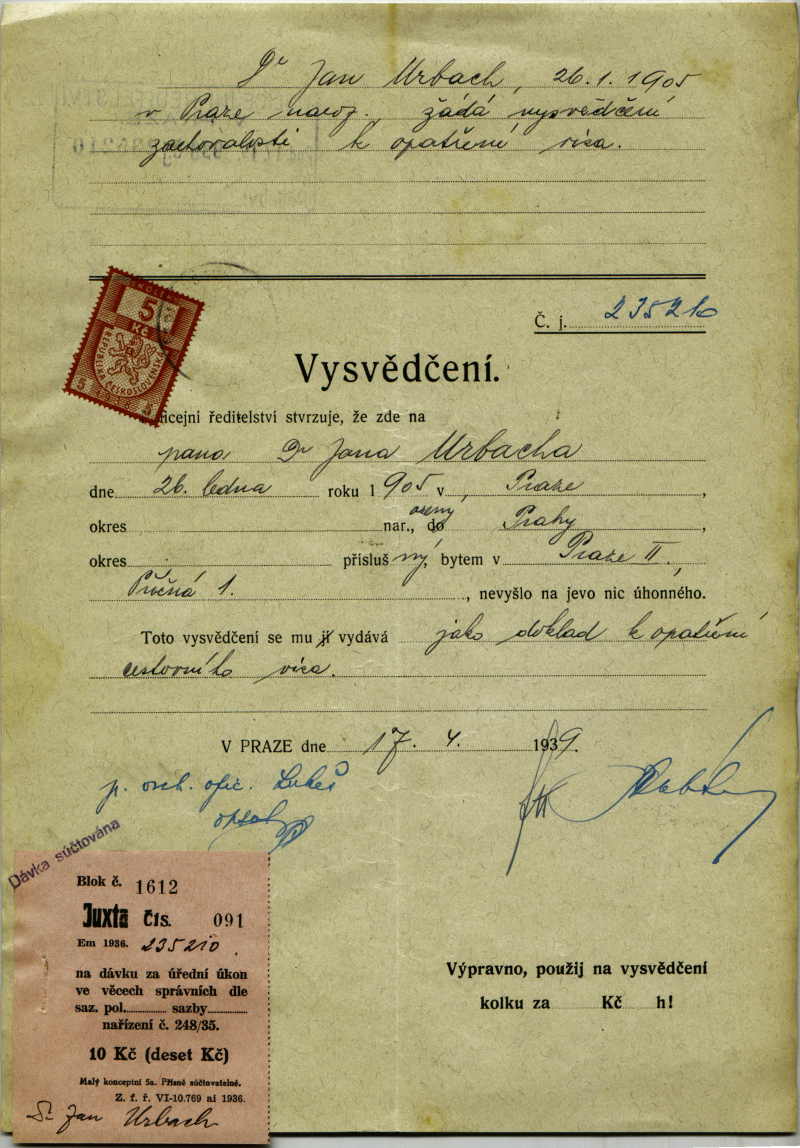 Dr Jan Urbach, 26.1.1905
v Praze naroz., žádá vysvědčení
zachovalosti k opatření visa.
5
Kč
REPUBLIKA ČESKOSLOVENSKÁ
5 5
Č. j. 235210
Vysvědčení.
licejní ředitelství stvrzuje, že zde na
pana Dr Jana Urbacha
dne 26. ledna roku 1905 v, Praze,
okres nar., do Prahy,
okres přísluš ný, bytem v Praze II,
Příčná 1., nevyšlo na jevo nic úhonného.
Toto vysvědčení se mu jí vydává jako doklad k opatření
cestovního visa.
V PRAZE dne 17. 4. 1939.
p. ofic. Lukeš
Dávka súčtována
Blok č. 1612
Juxta čís. 091
Em 1936. 235210.
na dávku za úřední úkon
ve věcech správních dle
saz. pol. sazby
nařízení č. 248/35.
10 Kč (deset Kč)
Malý konceptní Sa. Přísně súčtovatelné.
Z. f. ř. VI-10.769 ai 1936.
Dr Jan Urbach
Výpravno, použij na vysvědčení
kolku za Kč h!